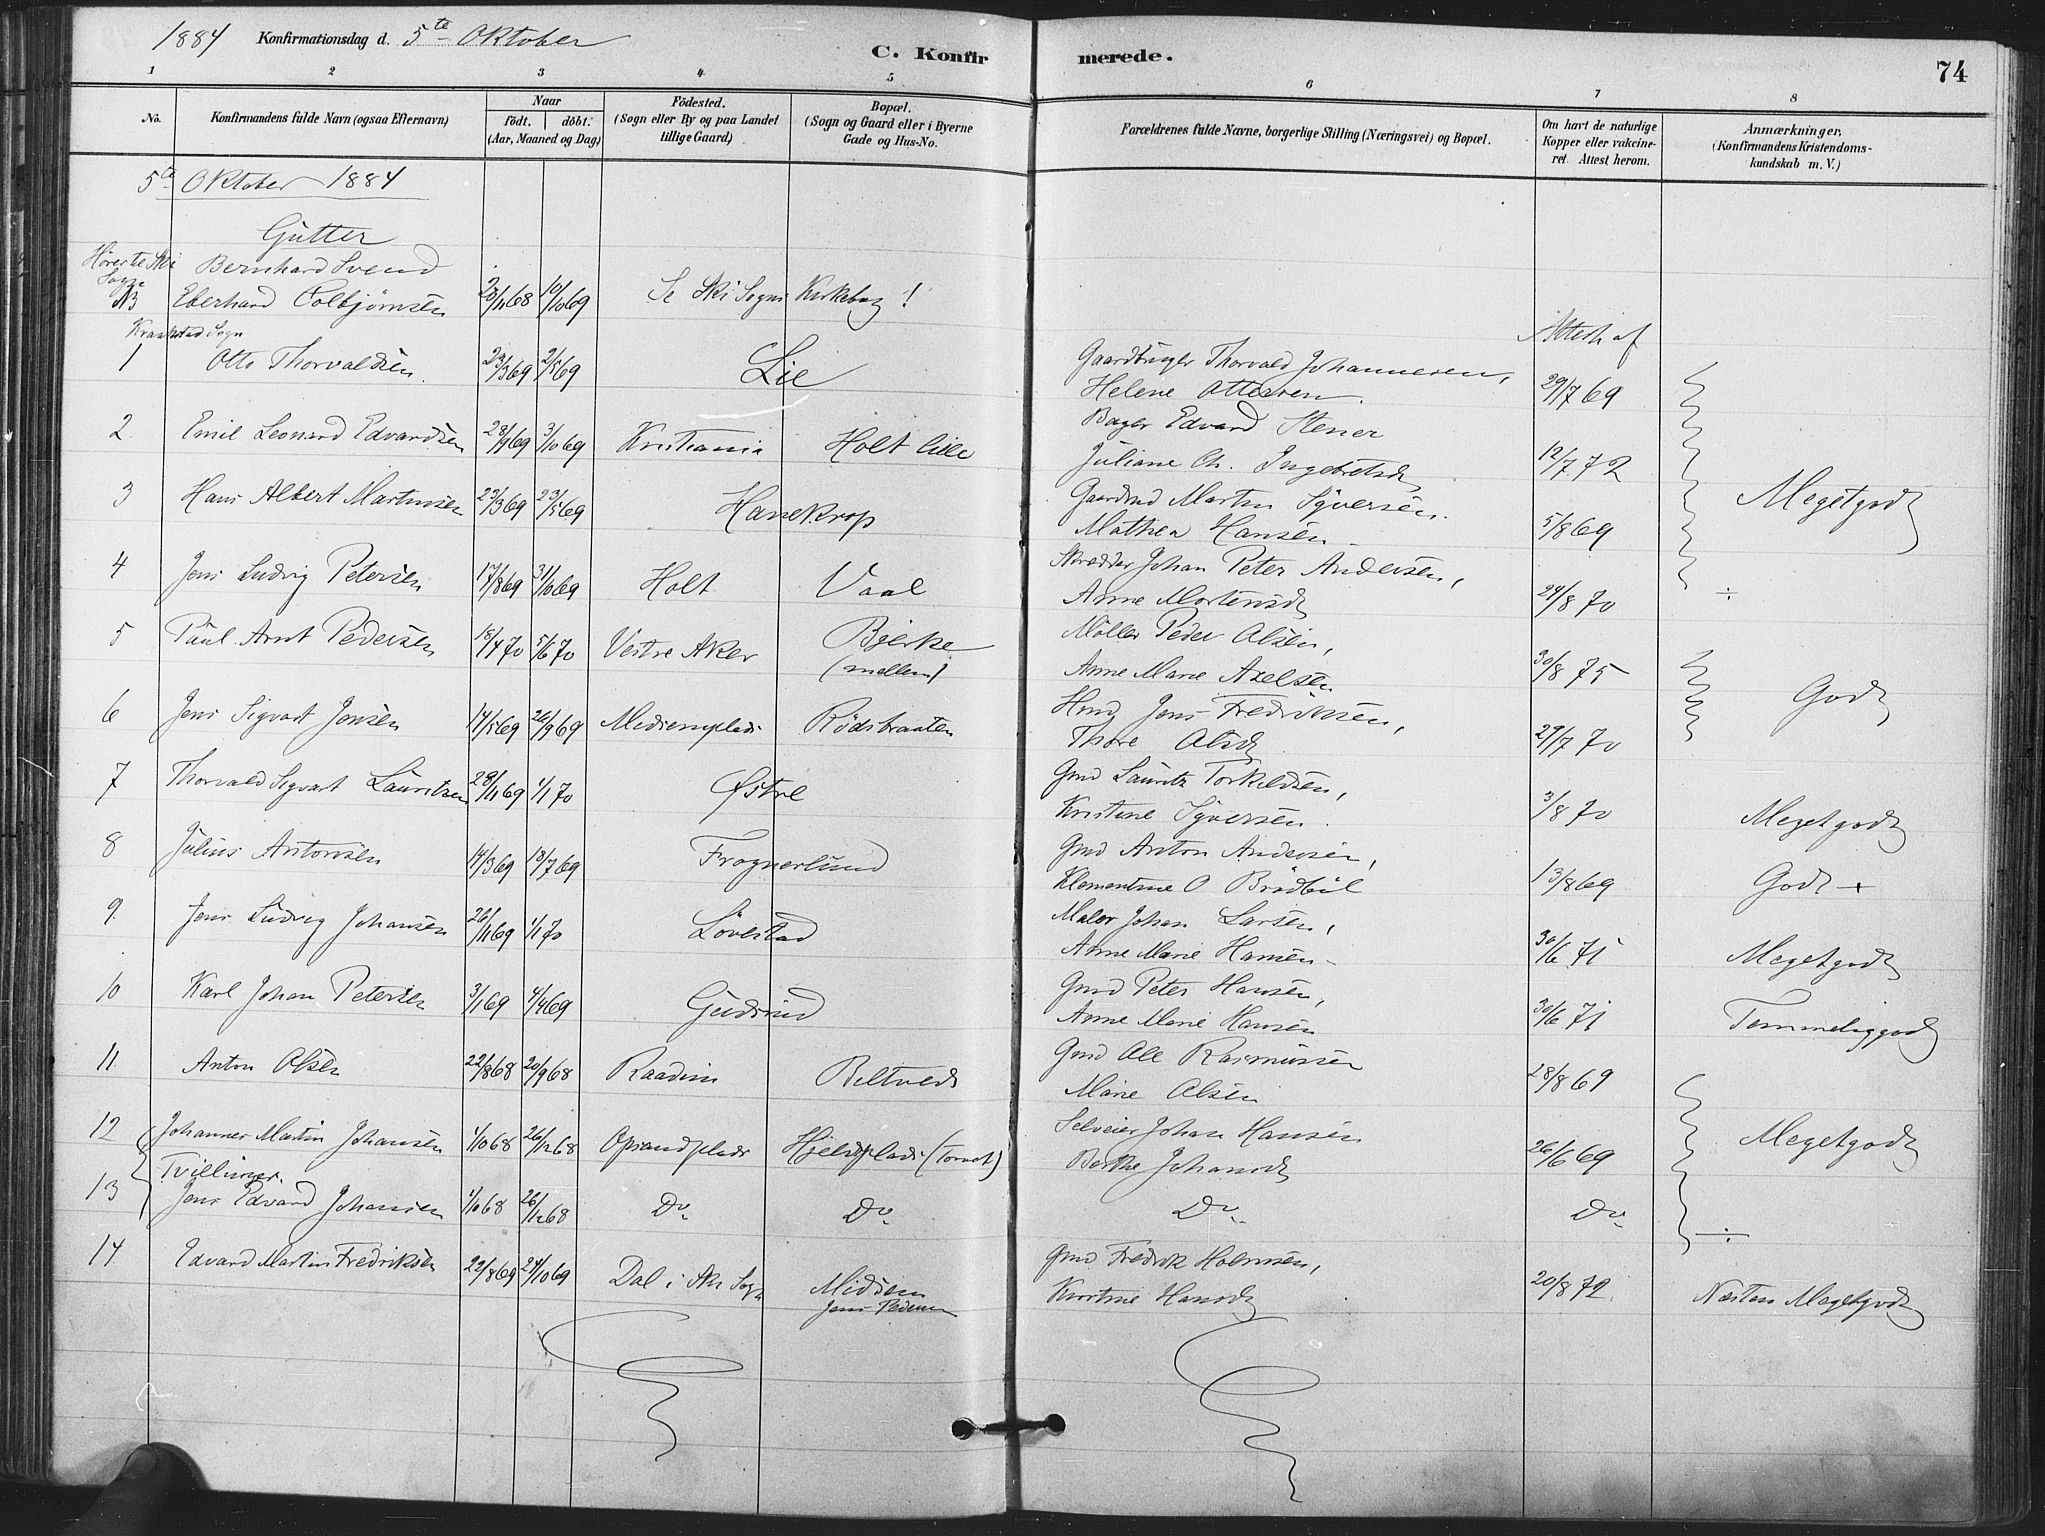 1884 Konfirmationsdag d. 5te Oktober
C. Konfirmerede.
74
1 2 3 4 5 6 7 8
No.
Konfirmandens fulde Navn (ogsaa Efternavn)
Naar
födt. döbt.
(Aar, Maaned og Dag)
Födested.
(Sogn eller By og paa Landet
tillige Gaard)
Bopæl.
(Sogn og Gaard eller i Byerne
Gade og Hus-No.
Forældrenes fulde Navne, borgerlige Stilling (Næringsvei) og Bopæl.
Om havt de naturlige
Kopper eller vakcine-
ret. Attest herom.
Anmærkninger.
(Konfirmandens Kristendoms-
kundskab m. V.)
5te Oktober 1884
Gutter
Hører til Ski Bernhard Svend
Sogn
NB Eberhard Colbjørnsen 10/10 69 Se Ski Sogns Kirkebog!
Kraakstad Sogn
Attest af
1 Otto Thorvaldsen 23/3 69 2/5 69 Lie Gaardbruger Thorvald Johannesen,
Helene Ottesen. 29/7 69
2. Emil Leonard Edvardsen 28/9 69 3/10 69 Kristiania Holt lille Bager Edvard Stener
Juliane Ch. Ingebretsd 12/7 72
3 Hans Albert Martinsen 23/3 69 23/5 69 Hanekrop Gaardmd Martin Syversen.
Mathea Hansen 5/8 69 Megetgodt
4 Jens Ludvig Petersen 17/8 69 31/10 69 Holt Vaal Skrædder Johan Peter Andersen,
Anne Mortensd 24/8 70 ÷
5 Paul Arnt Pedersen 18/4 70 5/6 70 Vestre Aker Bjerke Møller Peder Olsen,
(mellem) Anne Marie Axelsen 30/8 75
6 Jens Sigvart Jensen 14/5 69 26/9 69 Midsemplads Rödsbraaten Hmd Jens Fredriksen, Godt
Thore Olsd 29/7 70
7 Thorvald Sigvart Lauritsen 28/11 69 1/1 70 Østre Gmd Lauritz Torkildsen,
Kristine Syversen. 3/8 70 Megetgodt
8 Julius Antonsen 14/3 69 18/7 69 Frognerlund Gmd Anton Andersen,
Klementine O Brödböl 13/8 69 Godt +
9. Jens Ludvig Johansen 26/11 69 1/1 70 Lövestad Maler Johan Larsen,
Anne Marie Hansen 30/6 71 Megetgodt
10 Karl Johan Petersen 3/1 69 4/4 69 Gudsrud Gmd Peter Hansen,
Anne Marie Hansen 30/6 71 Temmeliggodt
11. Anton Olsen 22/8 68 20/9 68 Raadim Biltvedt Gmd Ole Rasmussen
Marie Olsen 28/8 69
12 Johannes Martin Johansen 1/10 68 26/12 68 Opsandplads Hjelmsplads (Torvet) Selveier Johan Hansen
Berthe Johansd 26/6 69 Megetgodt
Tvillinger.
13 Jens Edvard Johansen 1/10 68 26/12 68 Do Do Do Do ÷
14. Edvard Martin Fredriksen 22/8 69 24/10 69 Dal i Ski Sogn Midsem Gmd Fredrik Holmsen,
Jens Pedersen Kristine Hansd 20/8 72. Næsten Megetgodt